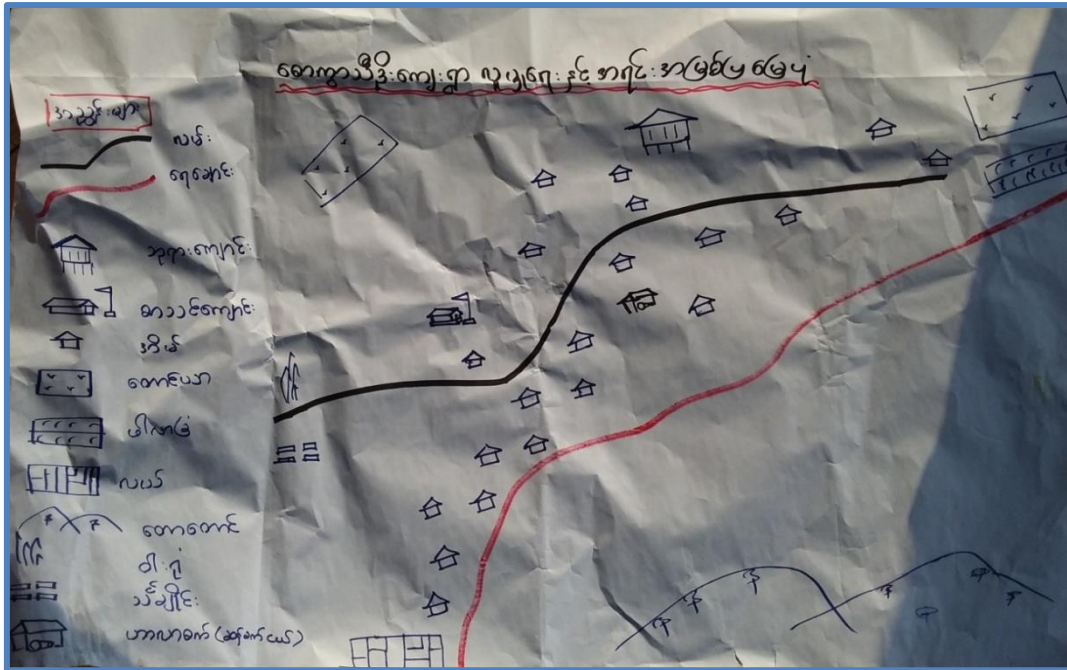 စောကွာသီဒိုးကျေးရွာ လူမှုရေးနှင့် အရင်းအမြစ်ပြ မြေပုံ
အညွှန်းများ
လမ်း
ရေချောင်း
ဘုရားကျောင်း
စာသင်ကျောင်း
အိမ်
တောင်ယာ
ဖါလာခြံ
လယ်
တောတောင်
ဝါးရုံ
သင်္ချိုင်း
ဟာလာစက် (ဆန်စက်ငယ်)